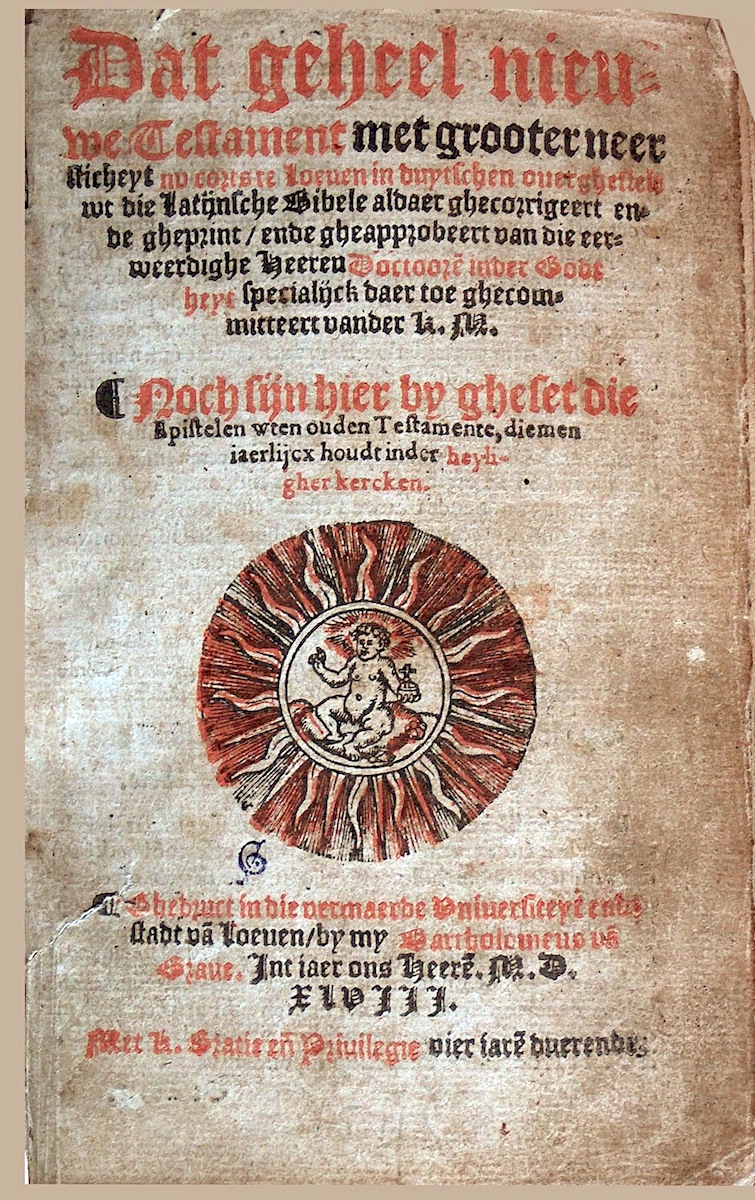 Dat geheel nieu⸗
we Testament met grooter neer
sticheyt nv corts te Loeuen in duytschen ouerghestelt
wt die Latijnsche Bibele aldaer ghecorrigeert en⸗
de gheprint / ende gheapprobeert van die eer⸗
weerdighe Heeren Doctoorẽ inder Godt
heyt specialijck daer toe ghecom⸗
mitteert vander K. M.
¶ Noch sijn hier by gheset die
Epistelen wten ouden Testamente, diemen
iaerlijcx houdt inder heyli-
gher kercken.
¶ Ghedruct in die vermaerde Vniuersiteyt ende
stadt vã Loeuen / by my Bartholomeus vã
Graue. Int iaer ons Heerẽ. M. D.
XLVIII.
Met K. Gratie eñ Priuilegie vier iarẽ duerende.